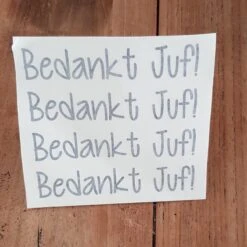 Bedankt Juf!
Bedankt Juf!
Bedankt Juf!
Bedankt Juf!